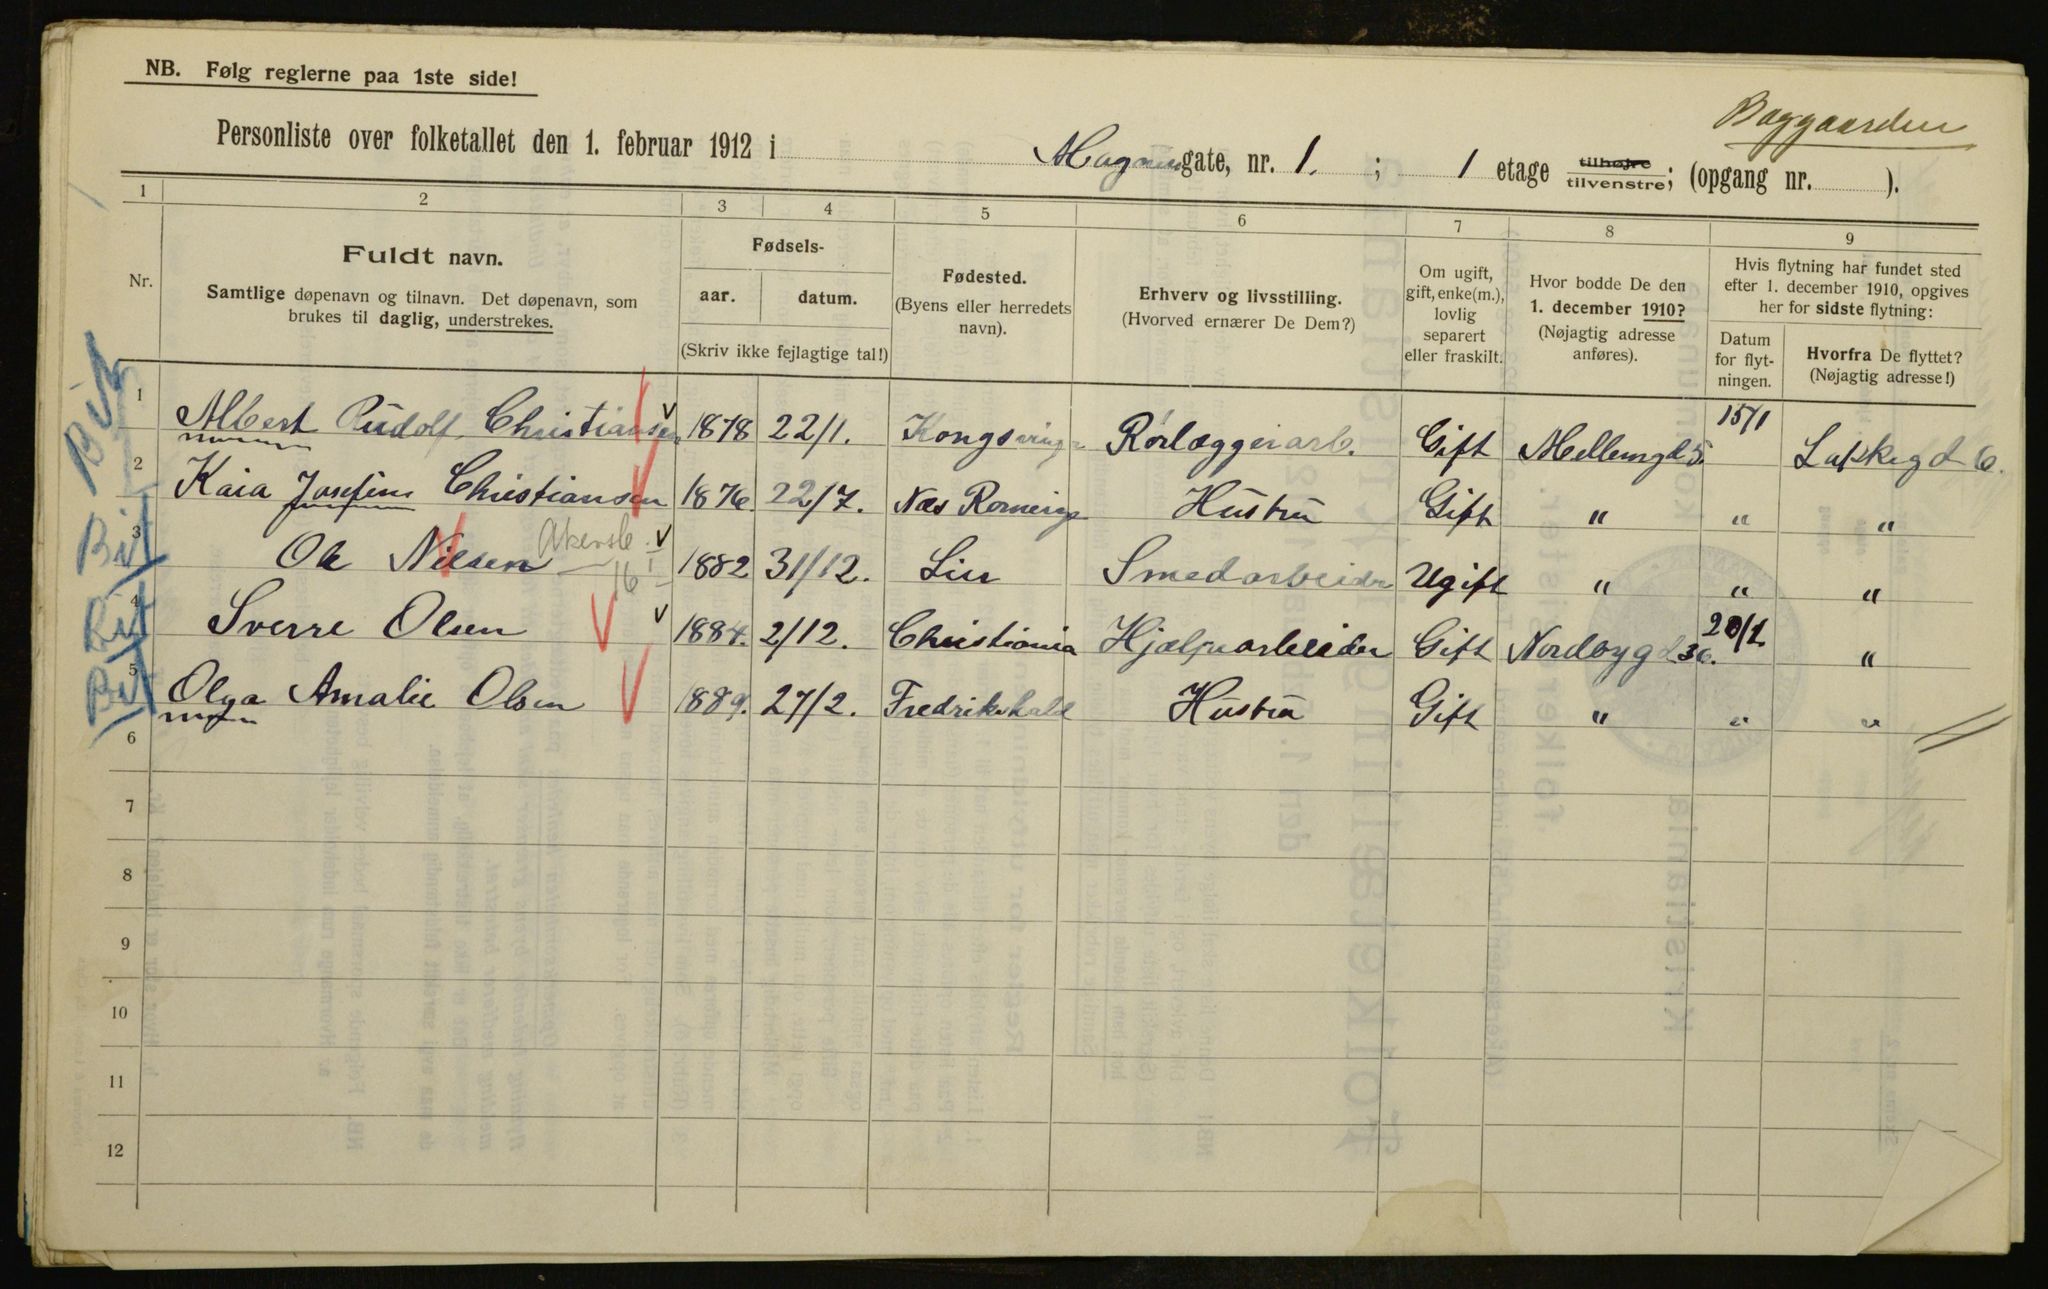 NB. Følg reglerne paa 1ste side!
Baggaarden
Personliste over folketallet den 1. februar 1912 i Magnusgate, nr. 1. ; 1 etage tilhøjre tilvenstre; (opgang nr. ).
1 2 3 4 5 6 7 8 9
Nr.
Fuldt navn.
Samtlige døpenavn og tilnavn. Det døpenavn, som
brukes til daglig, understrekes.
Fødsels-
aar. datum.
(Skriv ikke fejlagtige tal!)
Fødested.
(Byens eller herredets
navn).
Erhverv og livsstilling.
(Hvorved ernærer De Dem?)
Om ugift,
gift, enke(m.),
lovlig
separert
eller fraskilt.
Hvor bodde De den
1. december 1910?
(Nøjagtig adresse
anføres).
Hvis flytning har fundet sted
efter 1. december 1910, opgives
her for sidste flytning:
Datum
for flyt-
ningen.
Hvorfra De flyttet?
(Nøjagtig adresse!)
1 Albert Rudolf Christiansen 1878 22/1. Kongsvinger Rørlæggerarb. Gift Mellemgd 5. 15/1 6.
2 Kaia Josefine Christiansen 1876 22/7. Næs Romerige Hustru Gift " " "
3 Ole Nilsen Akersb. 16 1882 31/12. Lier Smedarbeider Ugift " " "
4 Sverre Olsen 1884. 2/12. Christiania Hjælpearbeider Gift Nordbygd 36. 20/1 "
5 Olga Amalie Olsen 1889. 27/2. Fredrikshald Hustru Gift " " "
6
7
8
9
10
11
12